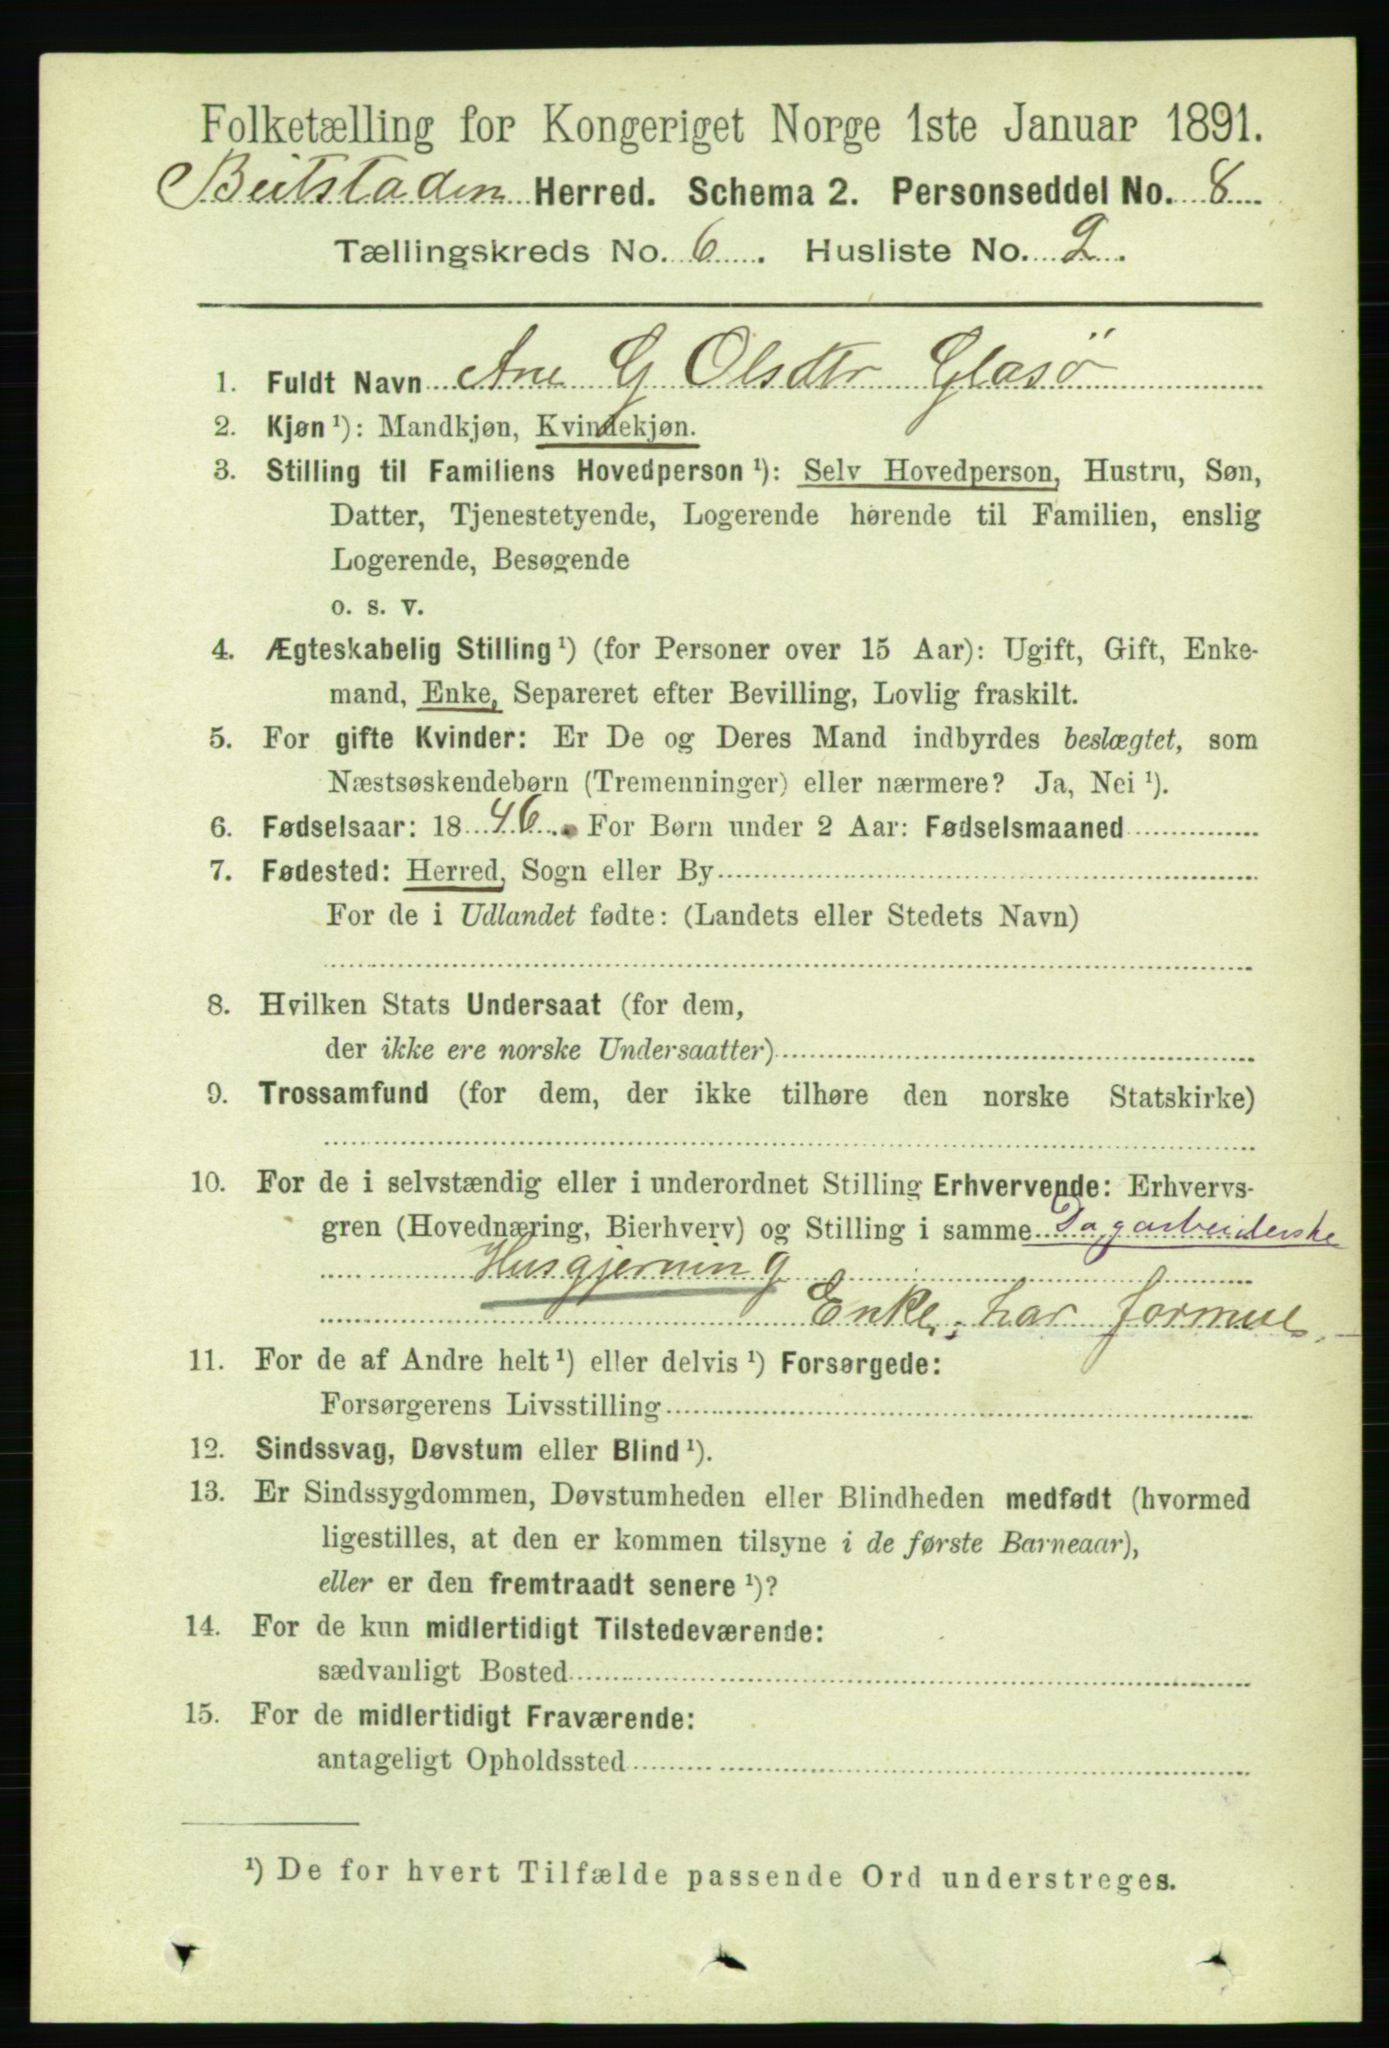 Folketælling for Kongeriget Norge 1ste Januar 1891.
Beitstaden Herred. Schema 2. Personseddel No. 8
Tællingskreds No. 6. Husliste No. 2.
1. Fuldt Navn Ane G Olsdtr Glasø
2. Kjøn ¹): Mandkjøn, Kvindekjøn.
3. Stilling til Familiens Hovedperson ¹): Selv Hovedperson, Hustru, Søn,
Datter, Tjenestetyende, Logerende hørende til Familien, enslig
Logerende, Besøgende
o. s. v.
4. Ægteskabelig Stilling ¹) (for Personer over 15 Aar): Ugift, Gift, Enke-
mand, Enke, Separeret efter Bevilling, Lovlig fraskilt.
5. For gifte Kvinder: Er De og Deres Mand indbyrdes beslægtet, som
Næstsøskendebørn (Tremenninger) eller nærmere? Ja, Nei ¹).
6. Fødselsaar: 1846. For Børn under 2 Aar: Fødselsmaaned
7. Fødested: Herred, Sogn eller By
For de i Udlandet fødte: (Landets eller Stedets Navn)
8. Hvilken Stats Undersaat (for dem,
der ikke ere norske Undersaatter)
9. Trossamfund (for dem, der ikke tilhøre den norske Statskirke)
10. For de i selvstændig eller i underordnet Stilling Erhvervende: Erhvervs-
gren (Hovednæring, Bierhverv) og Stilling i samme Dagarbeiderske
Husgjerning
Enke, har formue.
11. For de af Andre helt ¹) eller delvis ¹) Forsørgede:
Forsørgerens Livsstilling
12. Sindssvag, Døvstum eller Blind ¹).
13. Er Sindssygdommen, Døvstumheden eller Blindheden medfødt (hvormed
ligestilles, at den er kommen tilsyne i de første Barneaar),
eller er den fremtraadt senere ¹)?
14. For de kun midlertidigt Tilstedeværende:
sædvanligt Bosted
15. For de midlertidigt Fraværende:
antageligt Opholdssted
¹) De for hvert Tilfælde passende Ord understreges.